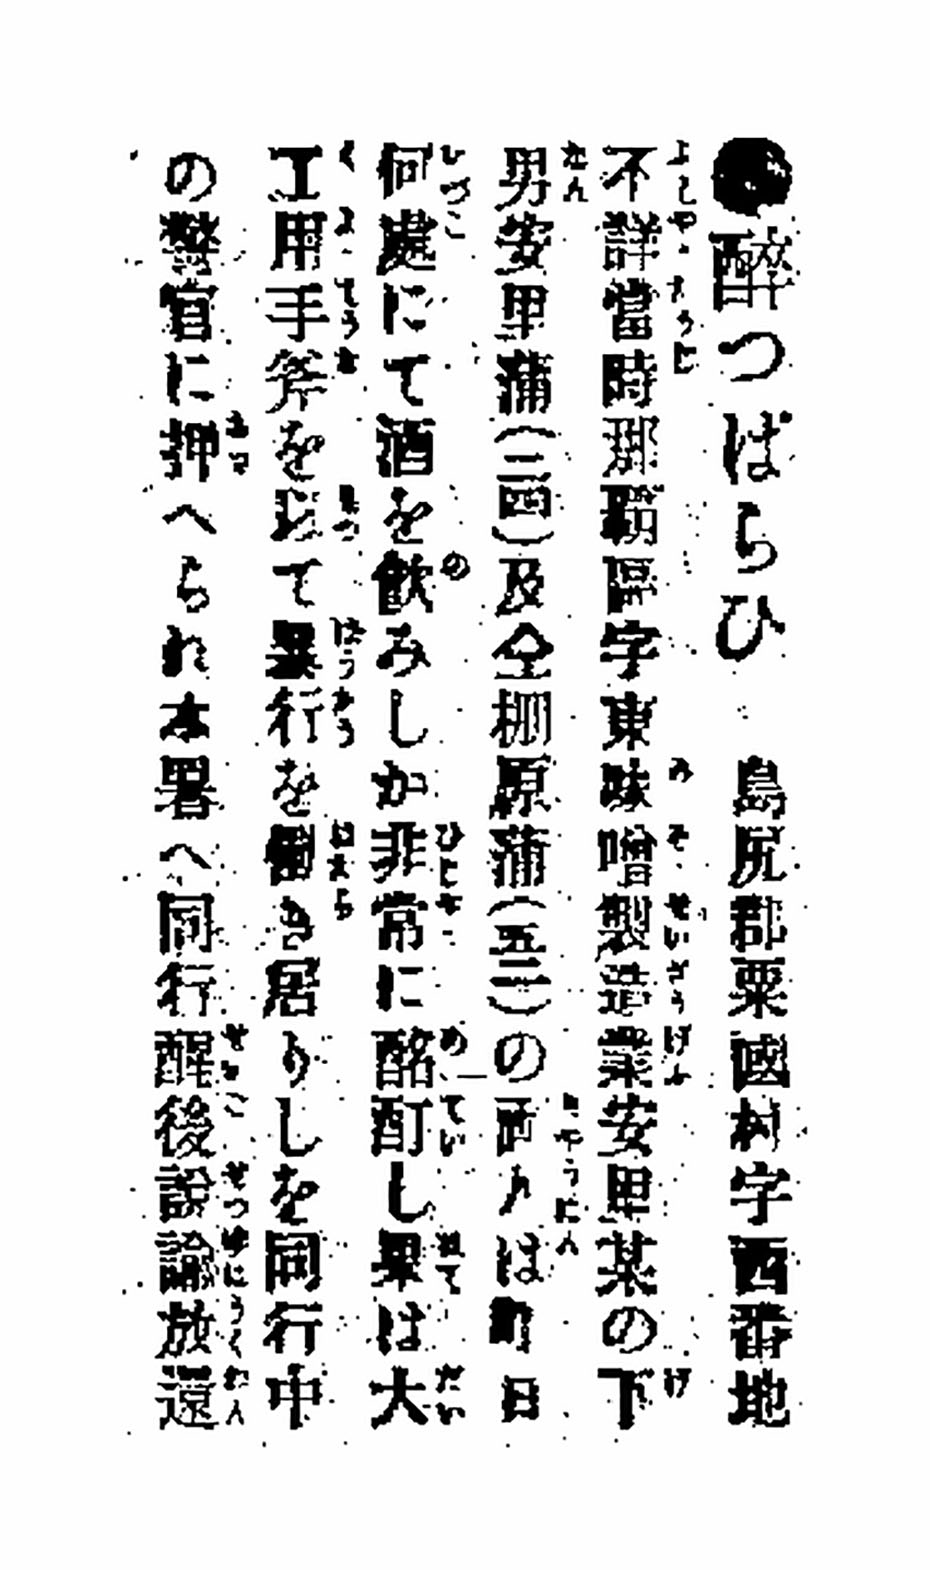 ●醉つぱらひ 島尻郡粟國村字西番地
不詳當時那覇區字東味噌製造業安里某の下
男安里蒲（三四）及全棚原蒲（五二）の両人は昨日
何處にて酒を飮みしか非常に酩酊し果は大
工用手斧を以て暴行を働き居りしを同行中
の警官に押へられ本署へ同行醒後説諭放還